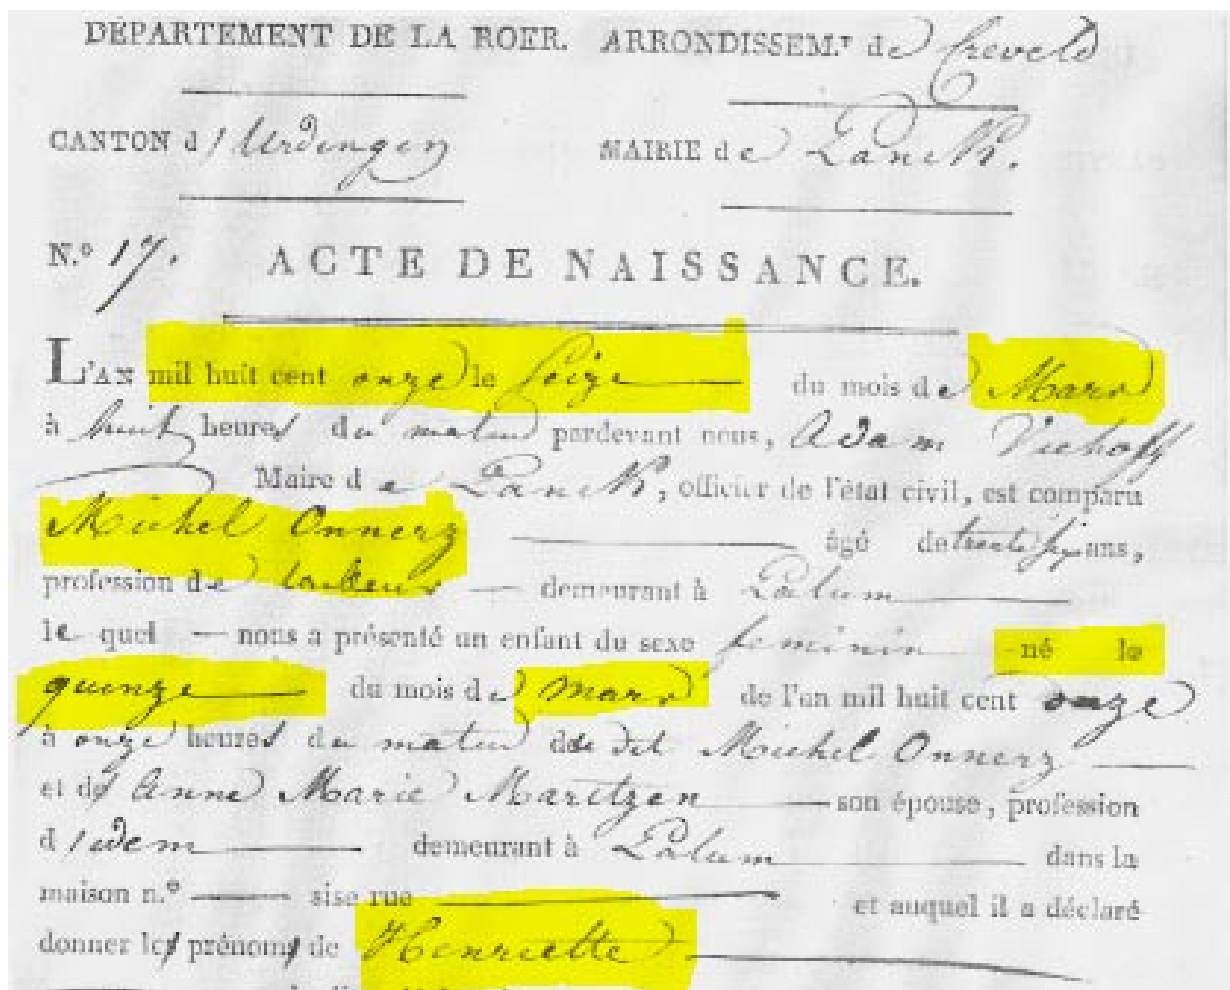 DÉPARTEMENT DE LA ROER. ARRONDISSEM.t de Creveld
CANTON d'Urdingen MAIRIE de Lanck.
N.° 17. ACTE DE NAISSANCE.
L'AN mil huit cent onze le seize du mois de Mars
à huit heures du matin pardevant nous, Adam Viehoff
Maire de Lanck, officier de l'état civil, est comparu
Michel Onnerz âgé de trente six ans,
profession de demeurant à Latum
le quel nous a présenté un enfant du sexe feminin né le
quinze du mois de mars de l'an mil huit cent onze
à onze heures du matin de dit Michel Onnerz
et de Anne Marie Maritzen son épouse, profession
d'idem demeurant à Latum dans la
maison n.° sise rue et auquel il a déclaré
donner les prénoms de Henriette